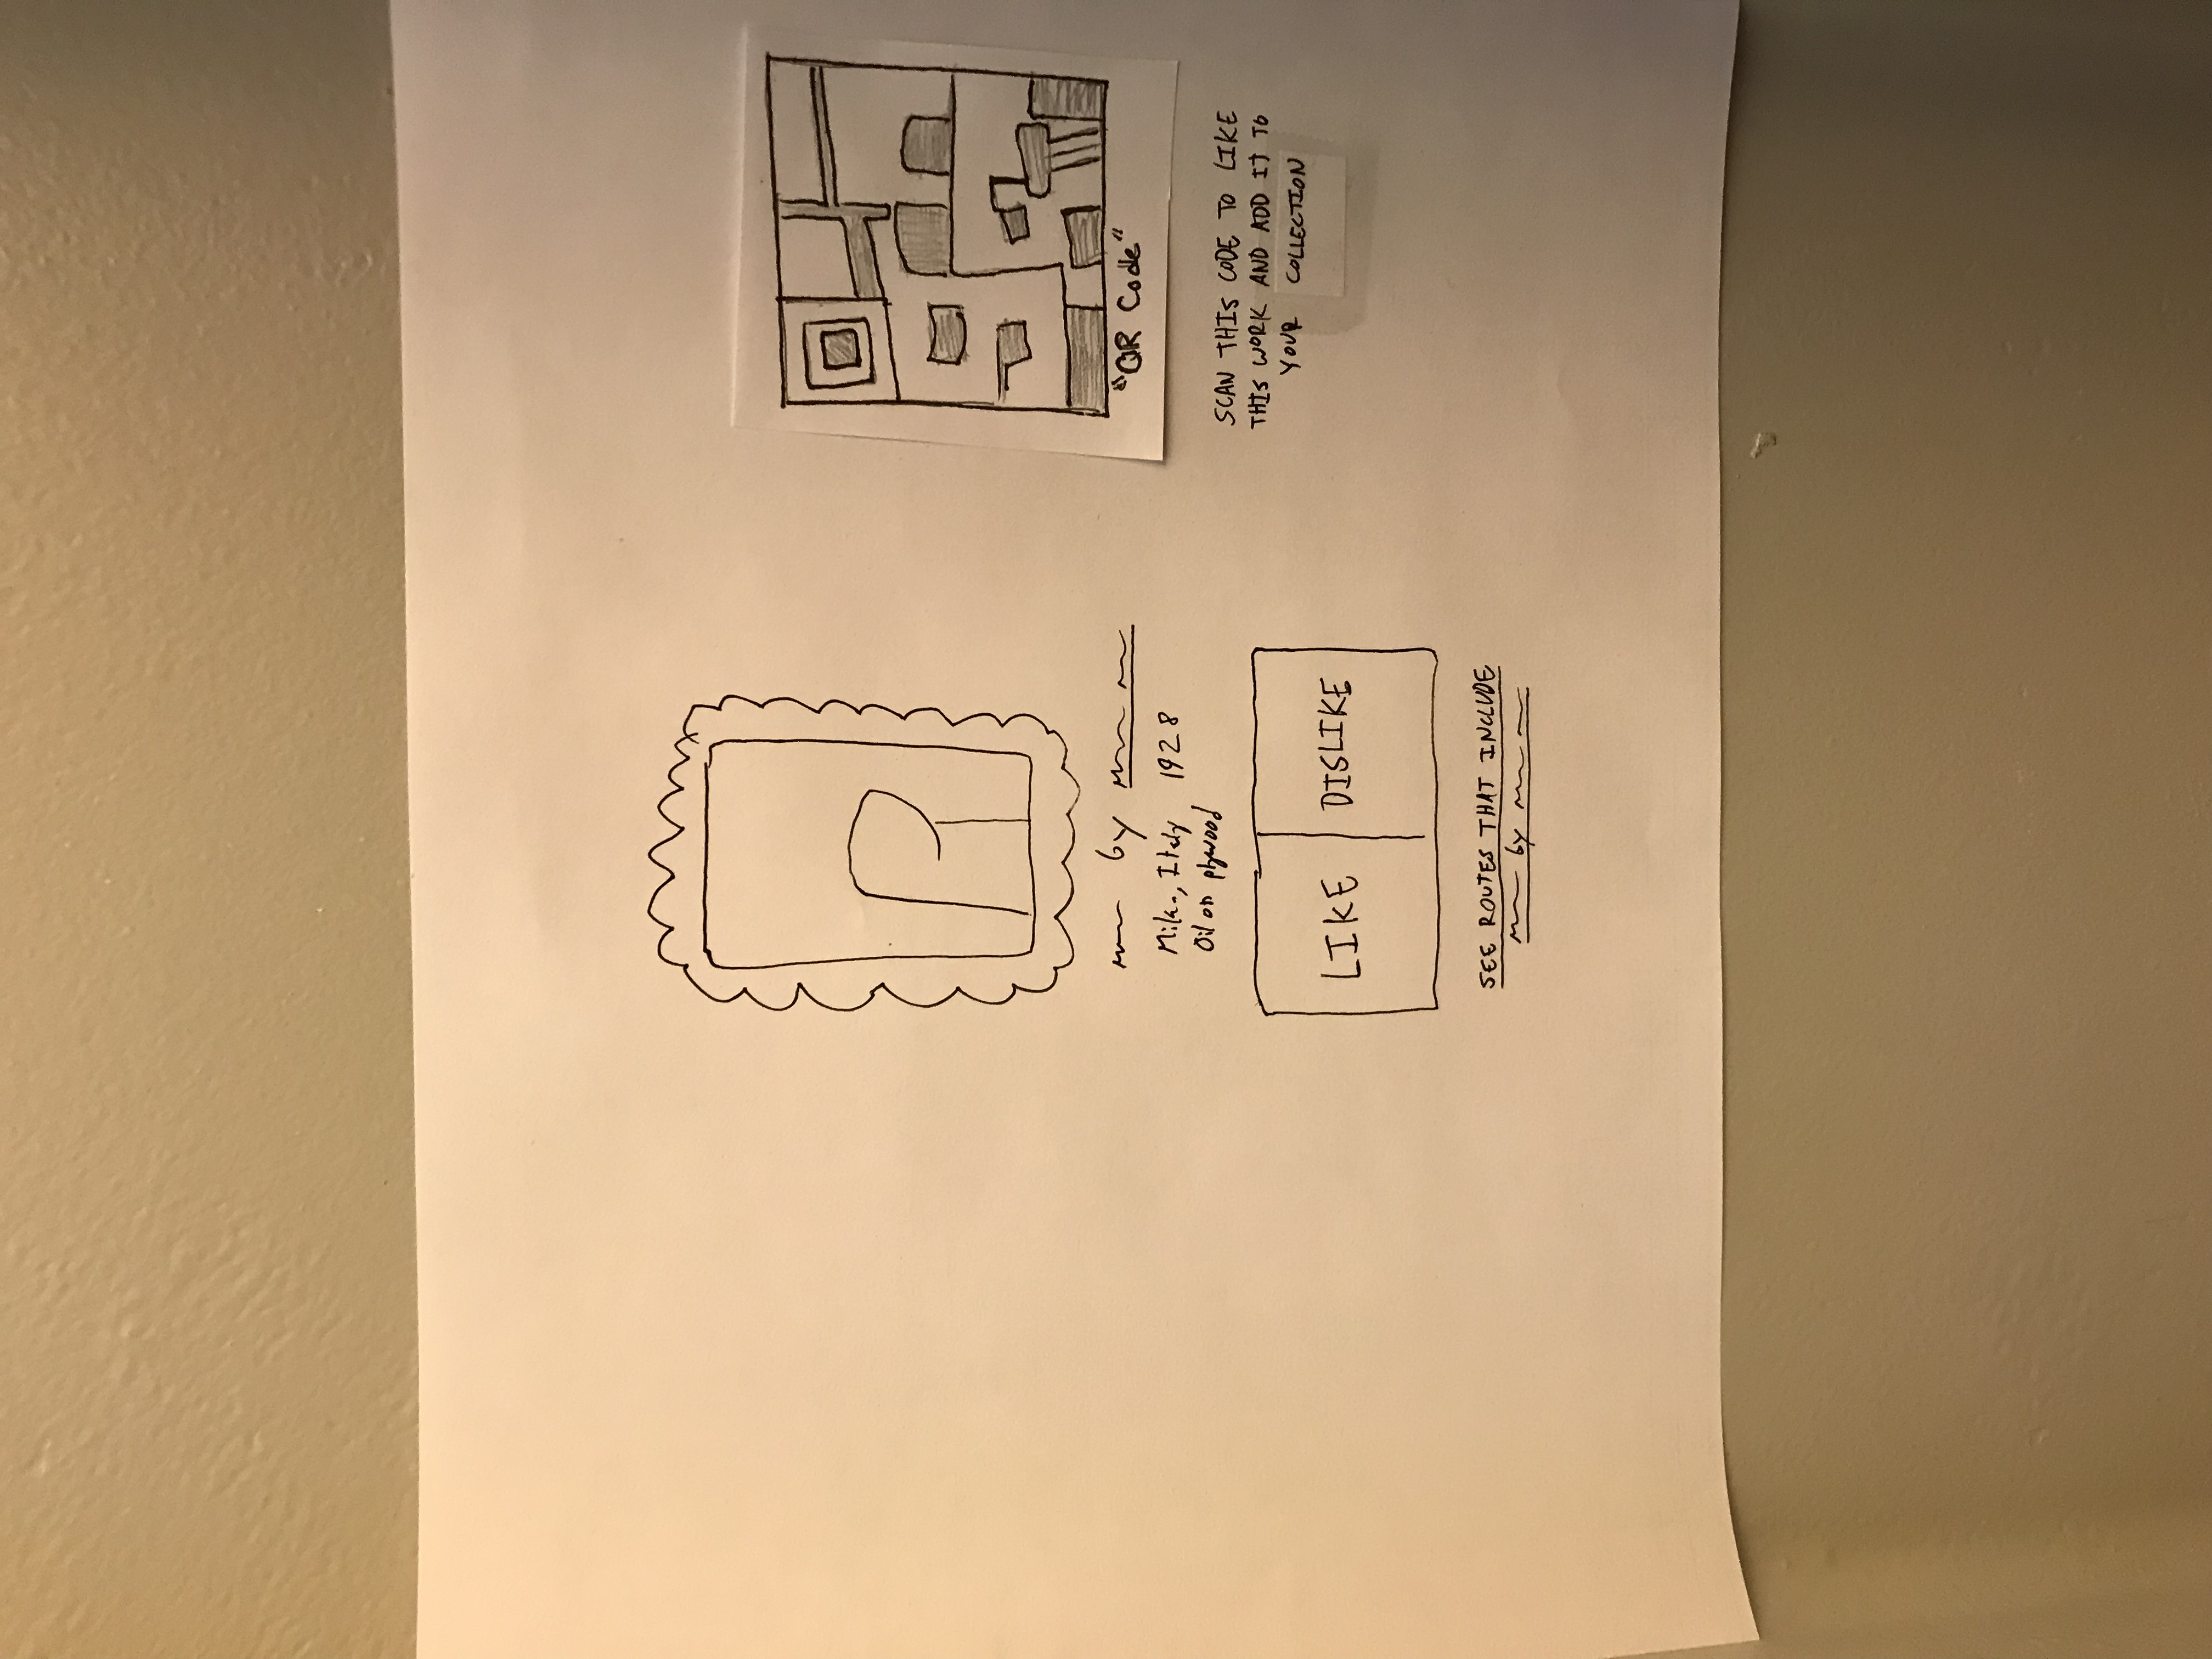 by
Italy 1928
Oil on plywood
LIKE
DISLIKE
SEE ROUTES THAT INCLUDE
by
"QR Code"
SCAN THIS CODE TO LIKE
THIS WORK AND ADD IT TO
YOUR COLLECTION